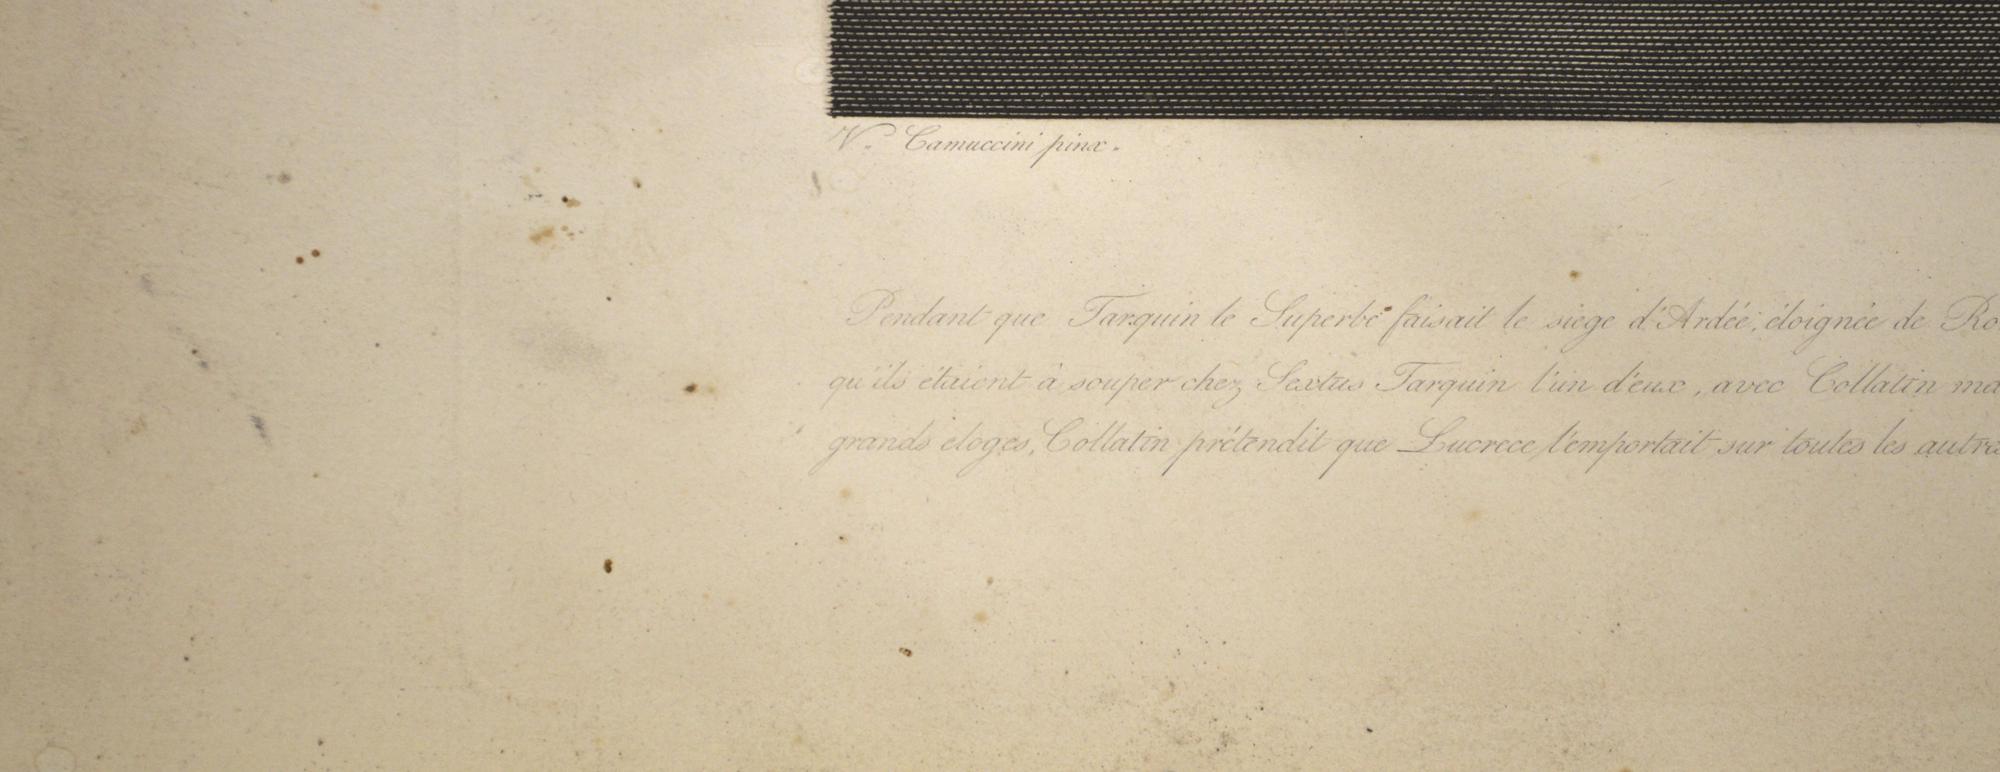 V. Camuccini pinx.
Pendant que Tarquin le Superbe faisait le siege d'Ardée, éloignée de Ro
qu'ils étaient à souper chez Sextus Tarquin l'un d'eux, avec Collatin ma
grands eloges, Collatin prétendit que Lucrece l'emportait sur toutes les autres